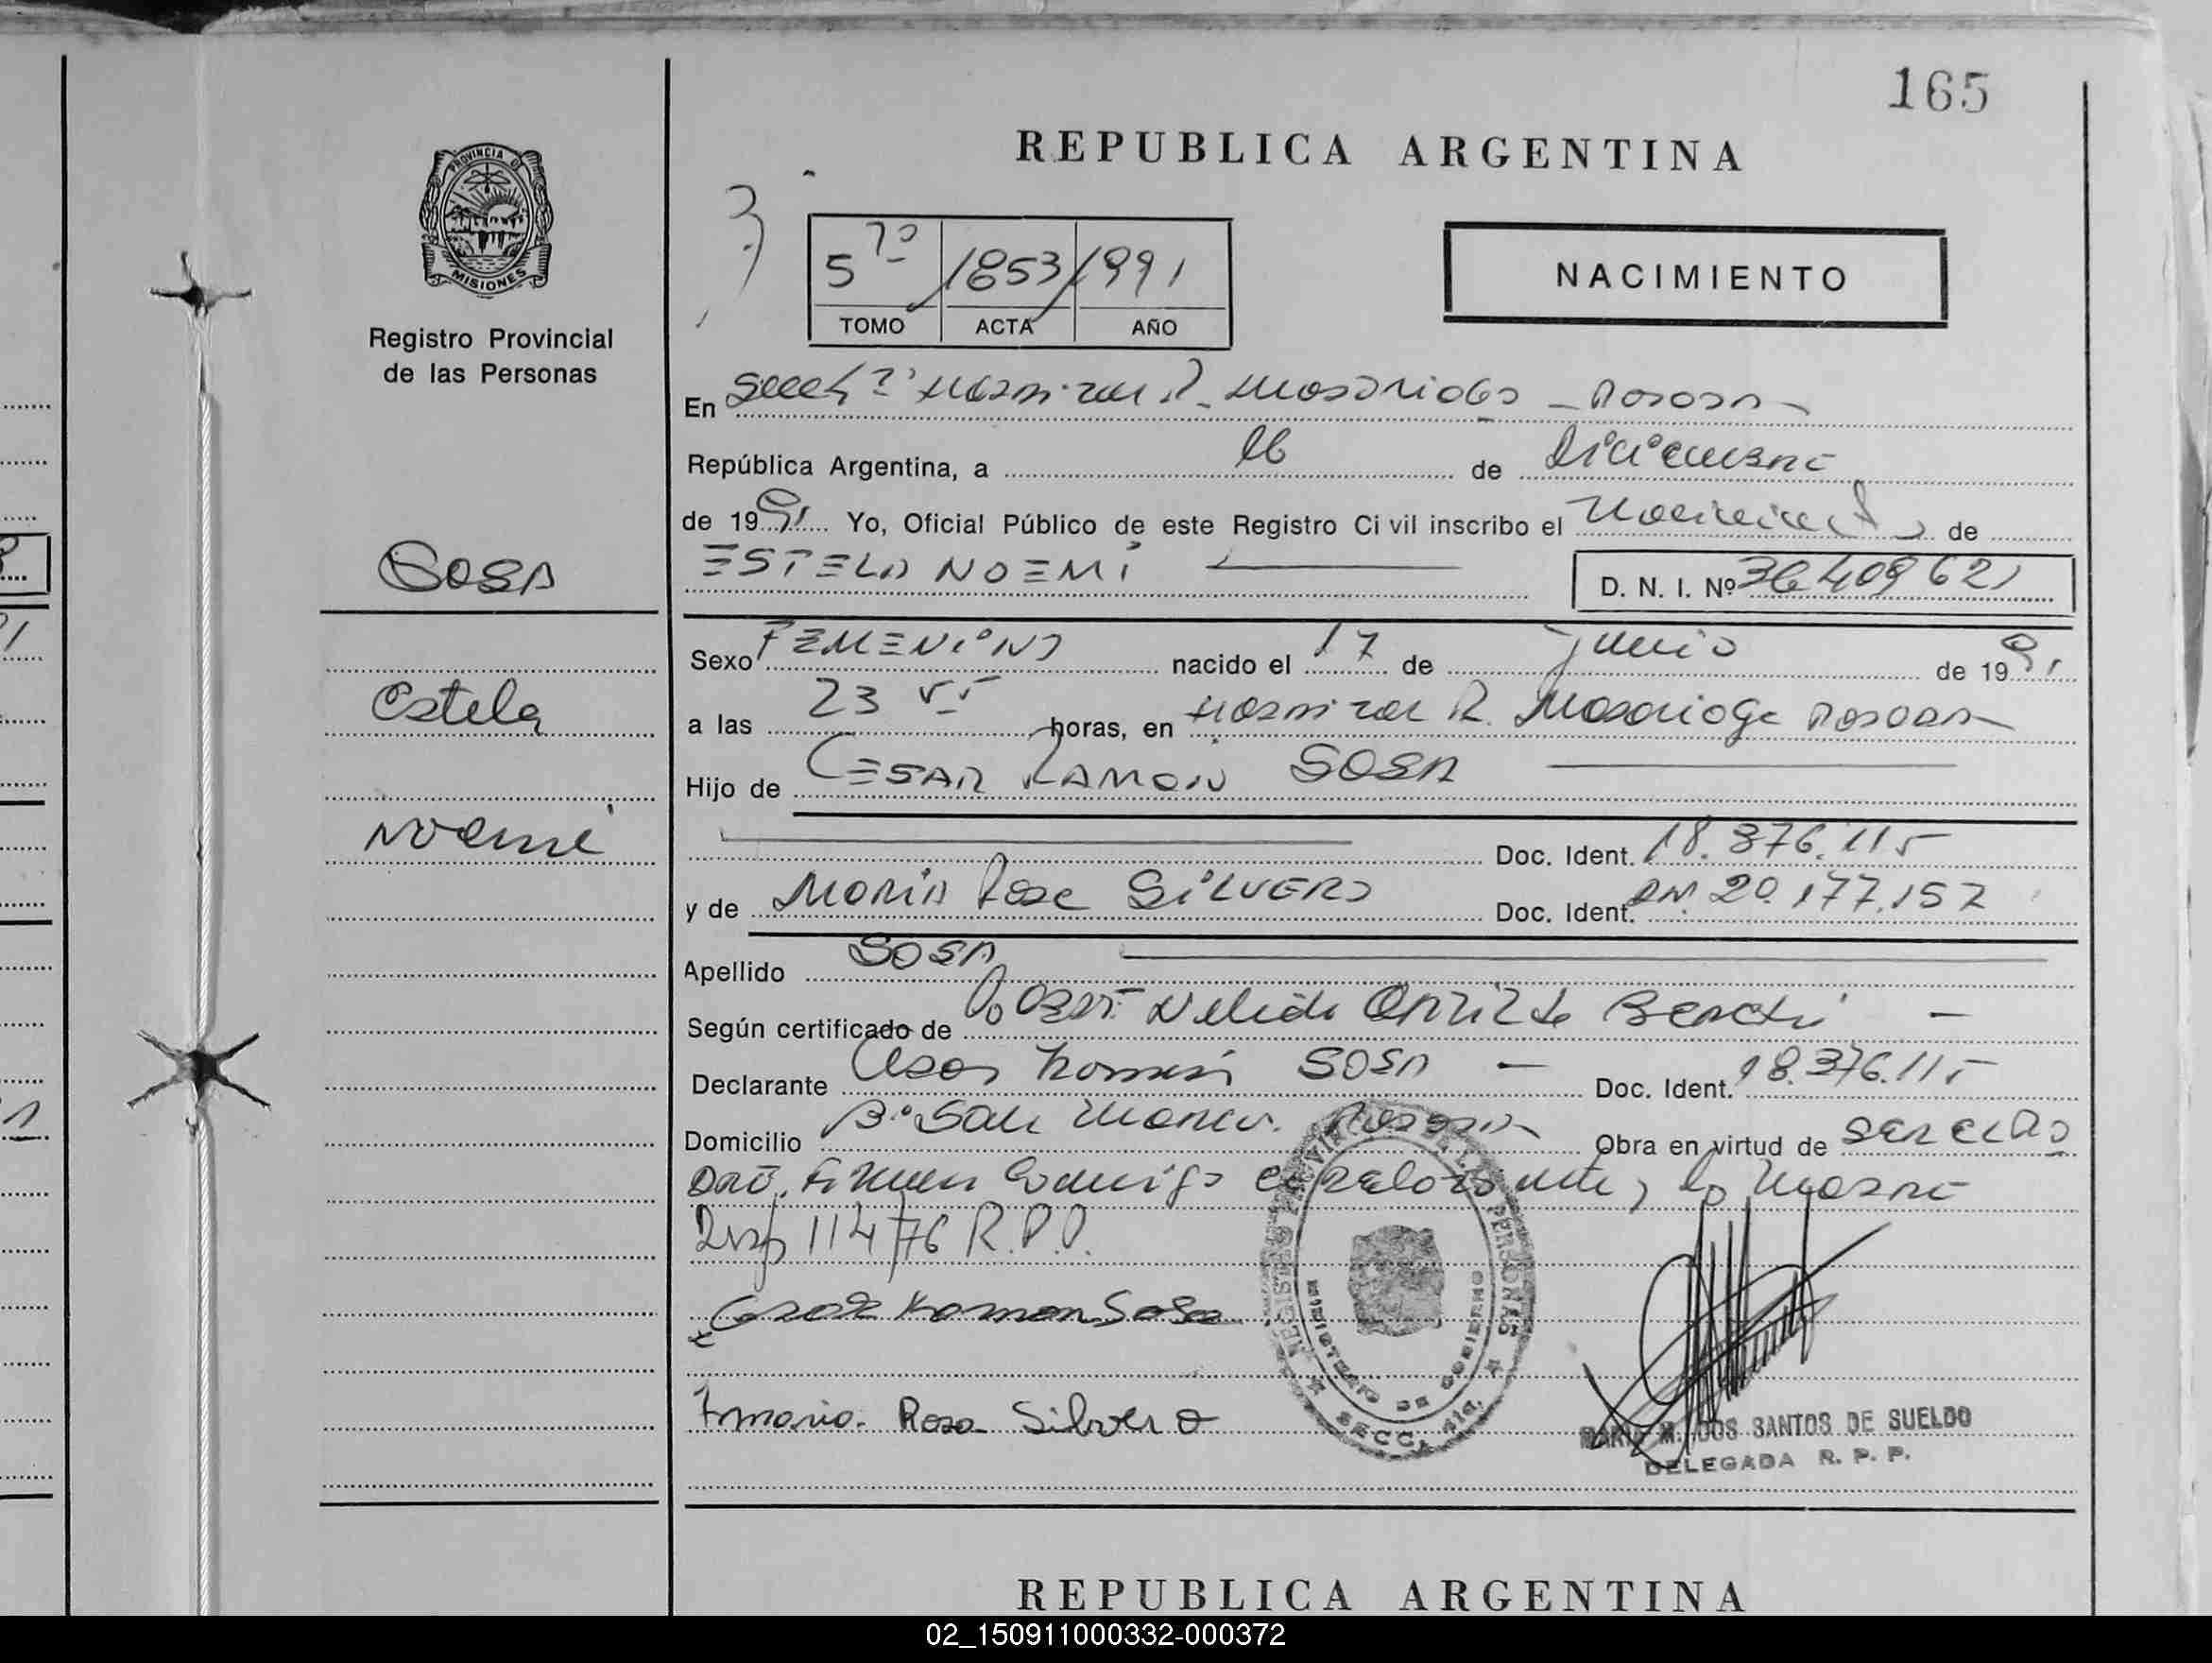 165
REPUBLICA ARGENTINA
PROVINCIA DE
MISIONES
Registro Provincial
de las Personas
5 to 1853 1991
TOMO ACTA AÑO
NACIMIENTO
En Secc 2ª Hospital R. Madariaga - Posadas -
República Argentina, a 16 de Diciembre
de 1991 Yo, Oficial Público de este Registro Civil inscribo el Nacimiento de
SOSA
ESTELA NOEMI
D. N. I. Nº 36409621
Sexo FEMENINO nacido el 17 de Junio de 1991
Estela
a las 23 55 horas, en Hospital R. Madariaga Posadas
Hijo de CESAR RAMON SOSA
Noemi
Doc. Ident. 18.376.115
y de MARIA Rosa SILVERO Doc. Ident. DNI. 20.177.157
Apellido SOSA
Según certificado de Obst. Nelida
Declarante Cesar Ramon SOSA - Doc. Ident. 18.376.115
Domicilio Bº San Marcos. Posadas Obra en virtud de ser el
conmigo el declarante y la Madre
Disp 114/76 R.P.P.
Cesar Ramon Sosa
Maria Rosa Silvero
REGISTRO PROVINCIAL DE LAS PERSONAS
MINISTERIO DE GOBIERNO
SECC.
MARIA M. DOS SANTOS DE SUELDO
DELEGADA R. P. P.
REPUBLICA ARGENTINA
02_150911000332-000372